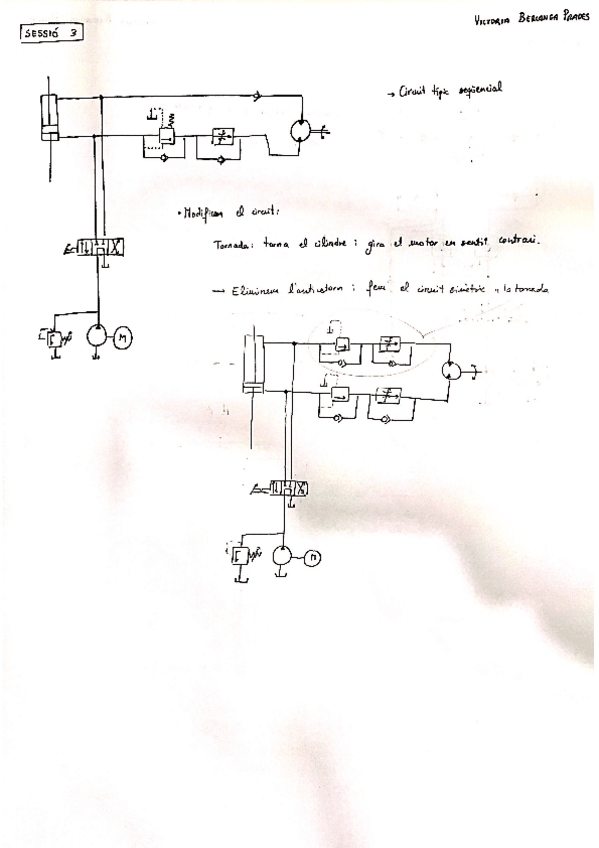 VICTORIA BERLANGA PRADES
SESSIÓ 3
→ Circuit típic seqüencial
• Modifiquem el circuit:
Tornada: torna el cilindre i gira el motor en sentit contrari.
M
→ Eliminem l'antiretorn i fem el circuit simètric a la tornada
M